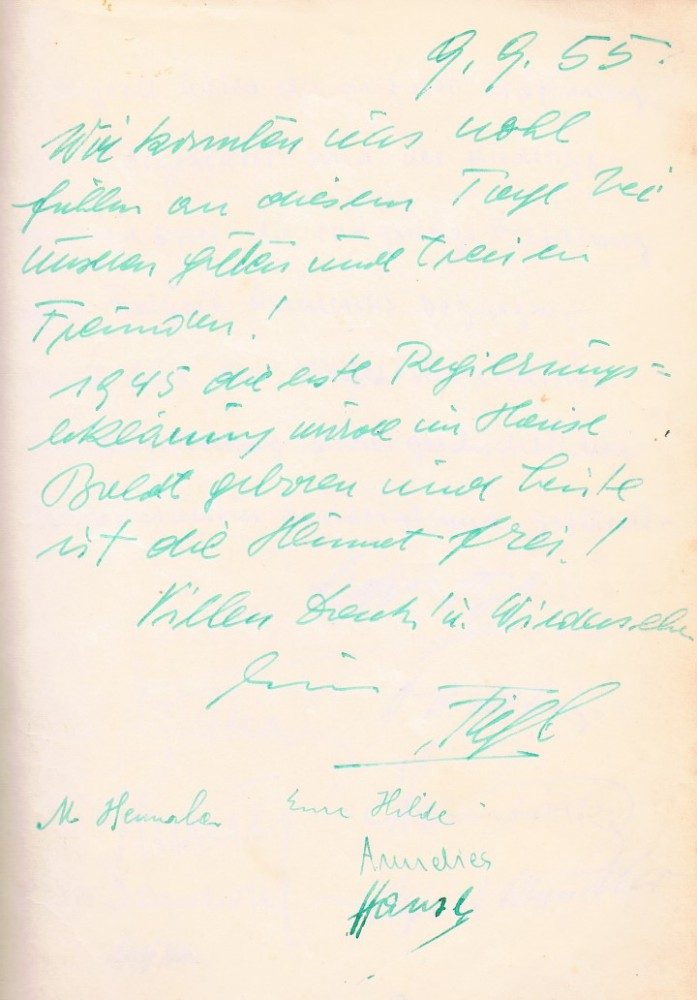 9. 9. 55.
Wir konnten uns wohl
fühlen an diesem Tage bei
unseren guten und treuen
Freunden!
1945 die erste Regierungs=
erklärung wurde im Hause
geboren und heute
ist die Heimat frei!
Vielen Dank! u. Wiedersehn
Euer Figl
M
Eure Hilde
Annelies
Hansl